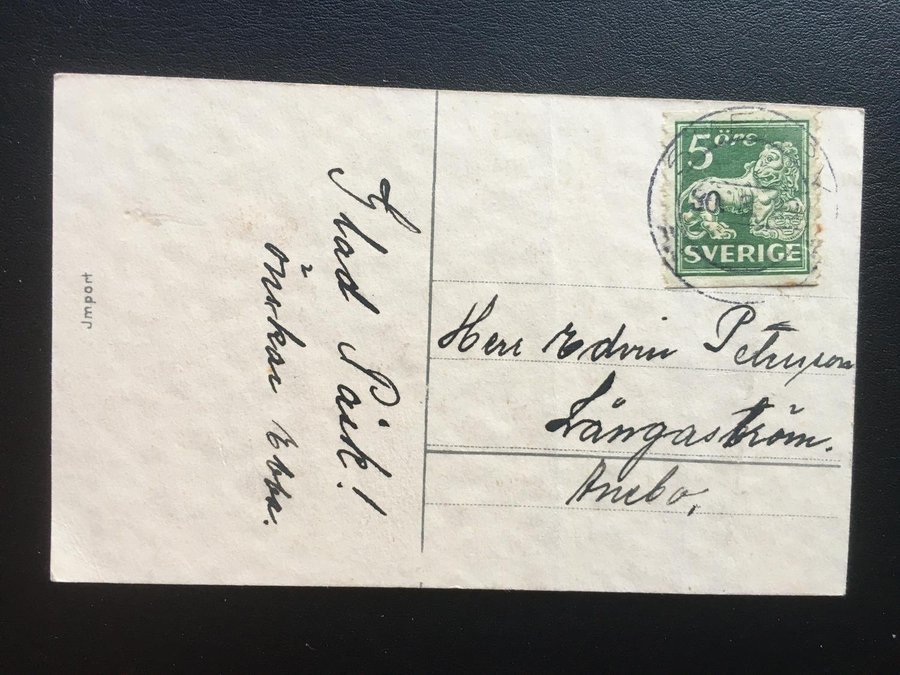 Jmport
Glad Påsk!
önskar Ebba.
5 öre
SVERIGE
Herr Edvin Peterson
Långaström.
Anebo,